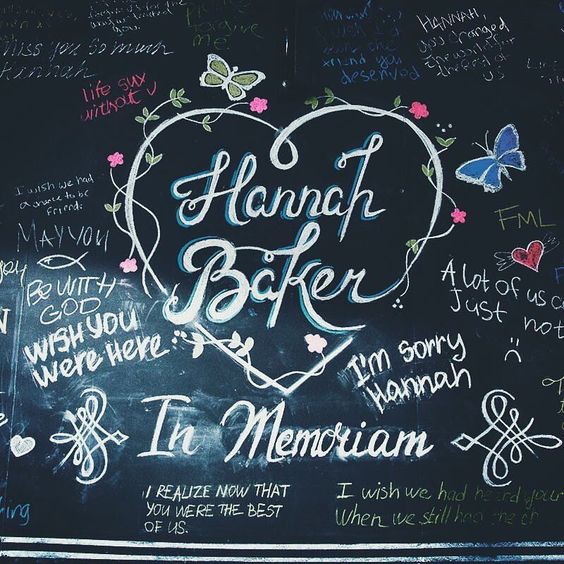 Miss you so much
Hannah
life sux
without U
forgive
me
you
deserved
HANNAH,
you changed
us
I wish we had
a chance to be
friends.
MAY YOU
BE WITH
GOD
WISH YOU
Were Here
Hannah
Baker
In Memoriam
FML
A lot of us
Just not
I'm sorry
Hannah
I REALIZE NOW THAT
YOU WERE THE BEST
OF US.
I wish we had heard your
When we still had the